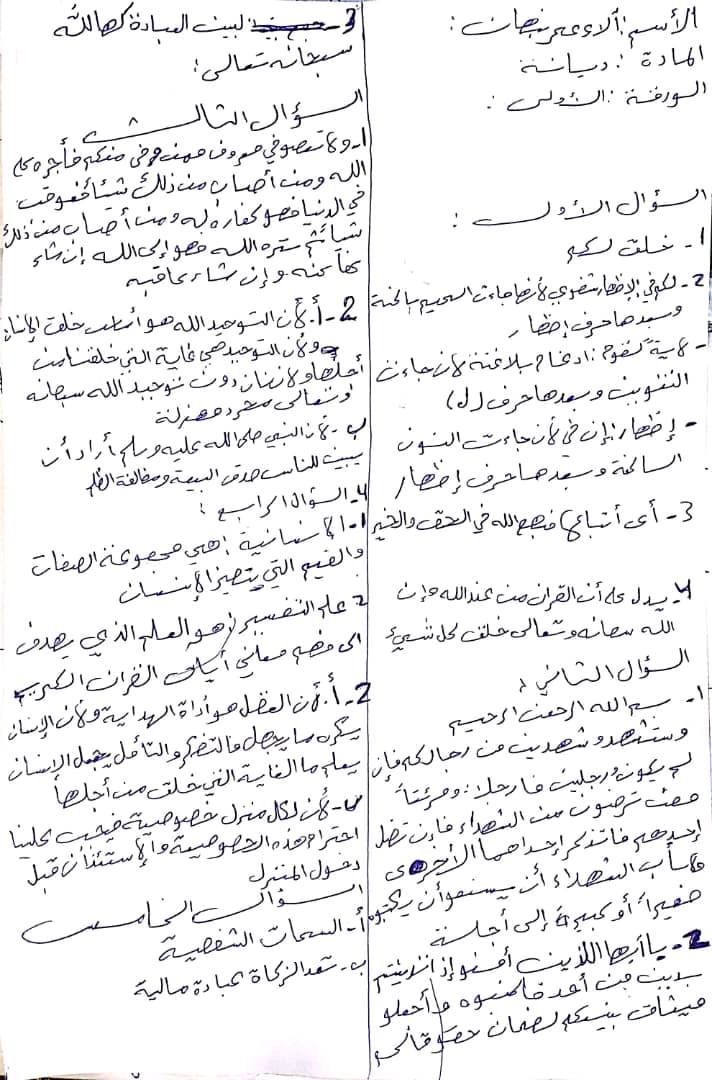 الأسم: آلاء عمر نبهان:
المادة: ديانة
الورقة: الأولى:
السؤال الأول:
1- خلق لكم
2- لكم في الإظهار شفوي لأنها جاءت الميم ساكنة
وبعدها حرف إظهار
- لآية لقوم: ادغام بلا غنة لأن جاءت
التنوين وبعدها حرف (ل)
- إظهار: إن في لأن جاءت النون
الساكنة وبعدها حرف إظهار
3- أي أتباعها فنهج الله في الحق والخير
4- يدل على أن القرآن من عند الله وإن
الله سبحانه وتعالى خلق كل شيء
السؤال الثاني:
1- بسم الله الرحمن الرحيم
وستشهدو شهدين من رجالكم فإن
لم يكون ورجلين فارجلا: ومرئتاً
ممن ترضون من الشهداء فإن تضل
إحدهم فاتذكر إحداهما الأخرى
ولا يأب الشهداء أن يسئمو أن يكتبوه
صغيراً أو كبيرة إلى أجلسة
2- يا أيها اللذين أمنو إذا تداينتم
بدين من أحد فاكتبوه وأجعلو
ميثاق بينكم لضمان حقوقاكم
3- لبيان العبادة كها لله
سبحانه تعالى:
السؤال الثالث
1- ولا تعصو في معروف فمن وفى منكم فأجره على
الله ومن أصاب من ذلك شئا فعوقب
في الدنيا فهو كفاره له ومن أصاب من ذلك
شيا ثم ستره الله فهو إلى الله إن شاء
عفا عنه وإن شاء عاقبه
2- أ. لأن التوحيد الله هو أساس خلق الإنسان
ولأن التوحيد هي غاية التي خلقنا من
أجلها ولانسان دون توحيد الله سبحانه
وتعالى مجرد مهزلة
ب- لأن النبي صلى الله عليه وسلم أراد أن
يبين للناس صدق البيعة ومخالفة الظلم
4- السؤال الرابع:
1- الإنسانية: هي مجموعة الصفات
والقيم التي يتميز الإنسان
2- علم التفسير: هو العلم الذي يهدف
الى فهم معاني أيات القران الكريم
2- أ. لأن العقل هو أداة الهداية ولأن الإنسان
يكره ما يجهل فالتفكر والتأمل يجعل الإنسان
يعلم ما الغاية التي خلق من أجلها
ب- لأن لكل منزل خصوصية فيجب علينا
احترام هذه الخصوصية والإستئذان قبل
دخول المنزل
السؤال الخامس
أ- السمات الشخصية
ب- تعد الزكاة عبادة مالية